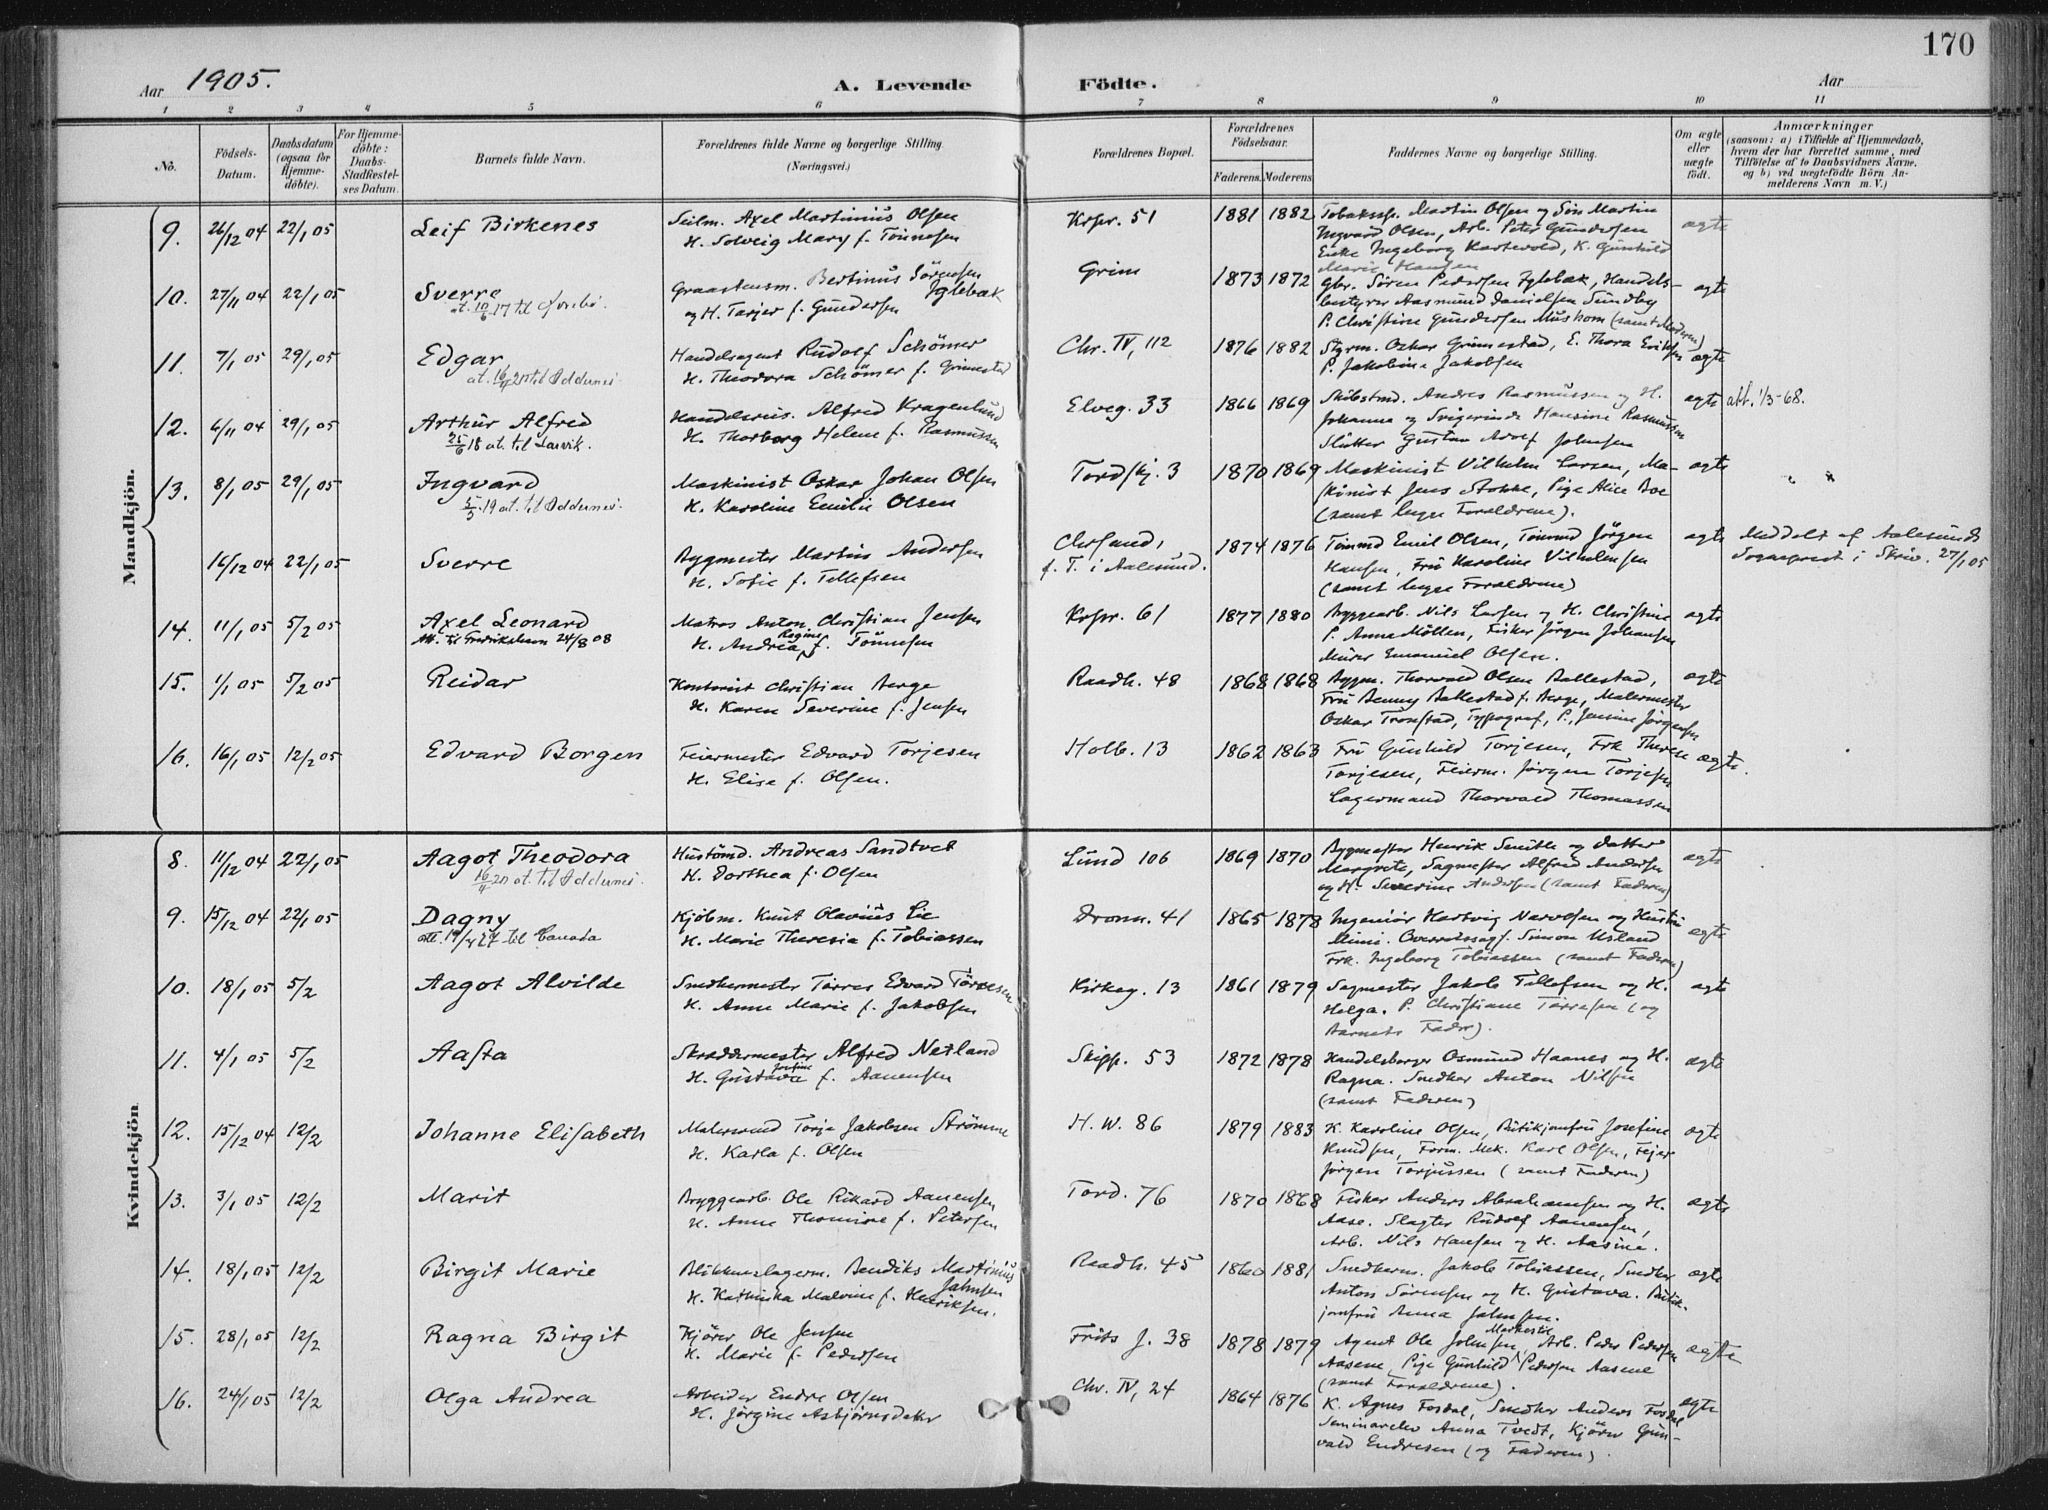 170
Aar 1905.
A. Levende
Födte.
Aar
1 2 3 4 5 6 7 8 9 10 11
No.
Födsels-Datum.
Daabsdatum (ogsaa for Hjemme-döbte).
For Hjemme-döbte: Daabs-Stadfæstel-ses Datum.
Barnets fulde Navn.
Forældrenes fulde Navne og borgerlige Stilling. (Næringsvei.)
Forældrenes Bopæl.
Forældrenes Födselsaar.
Faderens. Moderens.
Faddernes Navne og borgerlige Stilling.
Om ægte eller uægte födt.
Anmærkninger
(saasom: a) i Tilfælde af Hjemmedaab,
hvem der har forrettet samme, med
Tilföielse af to Daabsvidners Navne.
og b) ved uægtefödte Börn An-
melderens Navn m. V.)
Mandkjön.
9. 26/12 04 22/1 05 Leif Birkenes
Seilm. Axel Martinius Olsen
H. Solveig Mary f. Tönnesen
Krspr. 51 1881 1882
Tobakssp. Martin Olsen og Sön Martin
Ingvard Olsen, Arb. Peter Gundersen
Enke Ingeborg Hartevold, K. Gunhild
Marie Hansen
ægte
10. 27/11 04 22/1 05 Sverre
at. 10/6 17 til
Graastensm. Bertinus Sörensen
Fglebæk
og H. Tarjer f. Gundersen
Grim 1873 1872
Gbr. Sören Pedersen Fglebæk, Handels-
bestyrer Aasmund Danielsen Sundby
P. Christine Gundersen (samt Moderen)
ægte
11. 7/1 05 29/1 05 Edgar
at. 16/4 20 til Oddernes.
Handelsagent Rudolf Schömer
H. Theodora Schömer f. Grimestad
Chr. IV, 112 1876 1882
Styrm. Oskar Grimestad, E. Thora Eriksen
P. Jakobine Jakobsen
ægte
12. 6/11 04 29/1 05 Arthur Alfred
25/6 18 at. til Larvik.
Handelsreis. Alfred Kragenlund
H. Thorborg Helene f. Rasmussen
Elveg. 33 1866 1869
Skibstmd. Andres Rasmussen og H.
Johanna og Svigerinde Hansine Rasmussen
Slutter Gustav Adolf Johnsen
ægte att. 1/3-68.
13. 8/1 05 29/1 05 Ingvard
5/5 19 at. til Oddernes.
Maskinist Oskar Johan Olsen
H. Karoline Emilie Olsen
Tordskj. 3 1870 1869
Maskinist Vilhelm Larsen, Ma-
skinist Jens Stokke, Pige Alice Boe
(samt begge Forældrene).
ægte
16/12 04 22/1 05 Sverre
Bygmester Martin Andersen
H. Sofie f. Tellefsen
Chrsand,
f. T. i Aalesund. 1874 1876
Tömmd Emil Olsen, Tömmd Jörgen
Hansen, Fru Karoline Vilhelmsen
(samt begge Forældrene)
ægte
Meddelt af Aalesunds
Sogneprest i Skriv. 27/1 05
14. 11/1 05 5/2 05 Axel Leonard
Att. til Fredrikshavn 24/8 08
Matros Anton Christian Jensen
H. Andrea Regine f. Tönnesen
Krspr. 61 1877 1880
Byggearb. Nils Larsen og H. Christine
P. Anna Möllen, Fisker Jörgen Johansen
Murer Emanuel Olsen.
ægte
15. 1/1 05 5/2 05 Reidar
Kontorist Christian Berge
H. Karen Severine f. Jensen
Raadh. 48 1868 1868
Bygm. Thorvald Olsen Ballestad,
Fru Benny Ballestad f. Berge, Malermester
Oskar Tronstad, Typograf, P. Jensine Jörgensen
ægte
16. 16/1 05 12/2 05 Edvard Borgen
Feiermester Edvard Torjesen
H. Elise f. Olsen.
Holb. 13 1862 1863
Fru Gunhild Torjesen, Frk Therese
Torjesen, Feierm. Jörgen Torjesen
Lagermand Thorvald Thomassen
ægte.
Kvindekjön
8. 11/12 04 22/1 05 Aagot Theodora
16/4 20 at. til Oddernes.
Hustömd. Andreas Sandtvet
H. Dorthea f. Olsen
Lund 106 1869 1870
Bygmester Henrik Smith og Datter
Margrete, Sagmester Alfred Andersen
og H. Severine Andersen (samt Faderen)
ægte
9. 15/12 04 22/1 05 Dagny
att. 19/4 27 til Canada
Kjöbm. Knut Olavius Lie
H. Marie Theresia f. Tobiassen
Dronn. 41 1865 1878
Ingeniör Hartvig Narvesen og Hustru
Mimi. Overretssagf. Simon Usland
Frk. Ingeborg Tobiassen (samt Faderen)
ægte
10. 18/1 05 5/2 Aagot Alvilde
Snedkermester Törres Edvard Törresen
H. Anne Marie f. Jakobsen
Kirkeg. 13 1861 1879
Sagmester Jakob Tellefsen og H.
Helga. P. Christiane Törresen (og
Barnets Fader).
ægte
11. 4/1 05 5/2 Aasta
Skræddermester Alfred Netland
H. Gustava Josefine f. Aanensen
Skipp. 53 1872 1878
Handelsborger Osmund Haanes og H.
Ragna. Snedker Anton Nilsen
(samt Faderen)
ægte
12. 15/12 04 12/2 Johanne Elisabeth
Malersvend Torje Jakobsen Strömme
H. Karla f. Olsen
H. W. 86 1879 1883
K. Karoline Olsen, Butikjomfru Josefine
Knudsen, Form. Mek. Karl Olsen, Fejer
Jörgen Torjussen (samt Faderen)
ægte
13. 3/1 05 12/2 Marit
Byggearb. Ole Rikard Aanensen
H. Anne Thomine f. Petersen
Tord. 76 1870 1868
Fisker Anders Abrahamsen og H.
Aase. Slagter Rudolf Aanensen,
Arb. Nils Hansen og H. Aasine.
ægte
14. 18/1 05 12/2 Birgit Marie
Blikkenslagerm. Bendiks Martinius
Jahnsen
H. Kathinka Malvine f. Henriksen.
Raadh. 45 1860 1881
Snedkerm. Jakob Tobiassen, Snedker
Anton Sörensen og H. Gustava. Butik-
jomfru Anna Jahnsen.
ægte
15. 28/1 05 12/2 Ragna Birgit
Kjörer Ole Jensen
H. Marie f. Pedersen
Frits J. 38 1878 1879
Agent Ole Johnsen, Arb. Peder Pedersen
Aasene, Pige Gunhild Pedersen Aasene
(samt Forældrene).
ægte
16. 24/1 05 12/2 Olga Andrea
Arbeider Endre Olsen
H. Jörgine Asbjörnsdatter
Chr. IV, 24 1864 1876
K. Agnes Fosdal, Snedker Anders Fosdal
Seminarelev Anna Tvedt, Kjörer Gun-
vald Endresen (og Faderen).
ægte